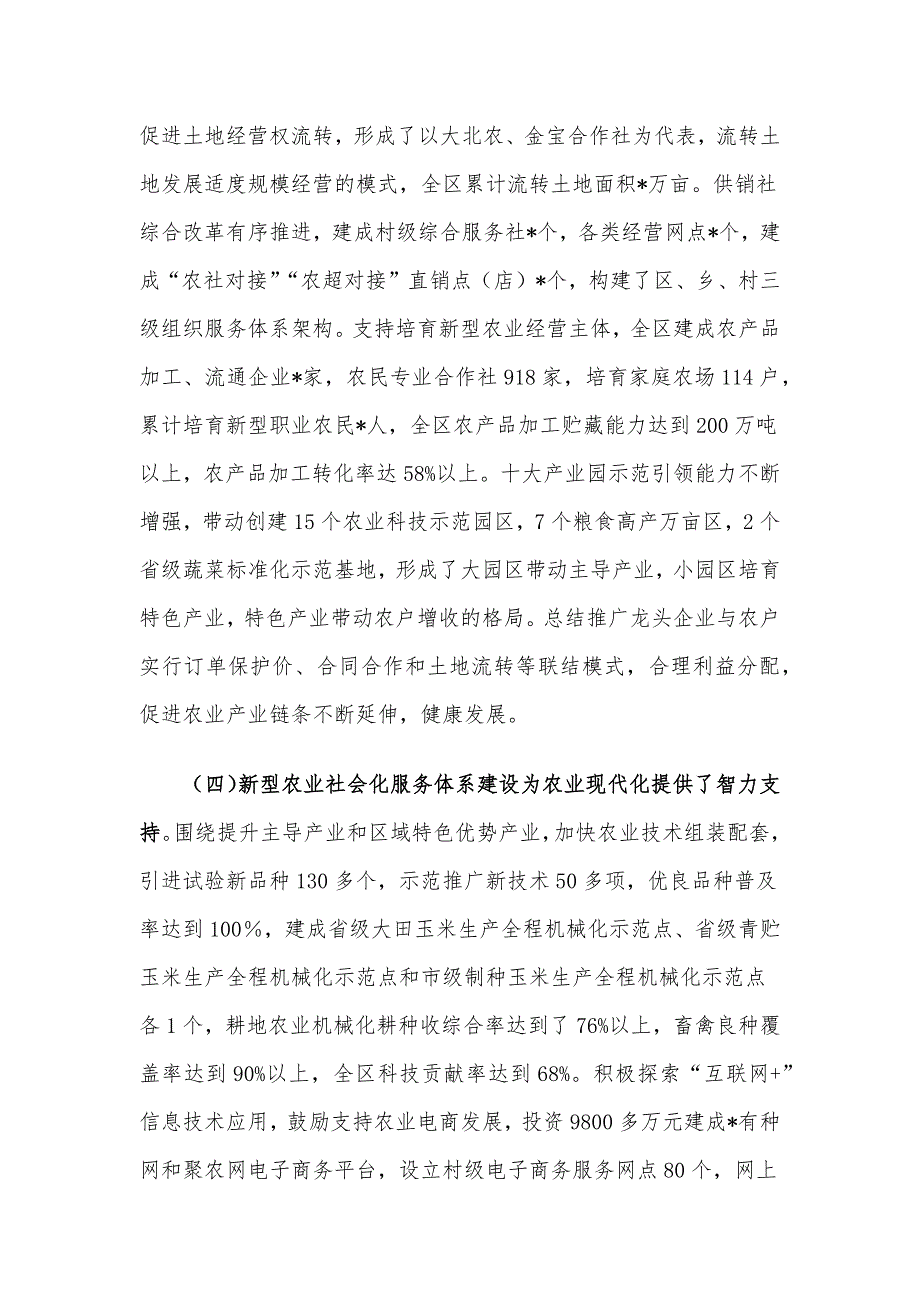 促进土地经营权流转，形成了以大北农、金宝合作社为代表，流转土
地发展适度规模经营的模式，全区累计流转土地面积*万亩。供销社
综合改革有序推进，建成村级综合服务社*个，各类经营网点*个，建
成“农社对接”“农超对接”直销点（店）*个，构建了区、乡、村三
级组织服务体系架构。支持培育新型农业经营主体，全区建成农产品
加工、流通企业*家，农民专业合作社 918 家，培育家庭农场 114 户，
累计培育新型职业农民*人，全区农产品加工贮藏能力达到 200 万吨
以上，农产品加工转化率达 58%以上。十大产业园示范引领能力不断
增强，带动创建 15 个农业科技示范园区，7 个粮食高产万亩区，2 个
省级蔬菜标准化示范基地，形成了大园区带动主导产业，小园区培育
特色产业，特色产业带动农户增收的格局。总结推广龙头企业与农户
实行订单保护价、合同合作和土地流转等联结模式，合理利益分配，
促进农业产业链条不断延伸，健康发展。
（四）新型农业社会化服务体系建设为农业现代化提供了智力支
持。围绕提升主导产业和区域特色优势产业，加快农业技术组装配套，
引进试验新品种 130 多个，示范推广新技术 50 多项，优良品种普及
率达到 100%，建成省级大田玉米生产全程机械化示范点、省级青贮
玉米生产全程机械化示范点和市级制种玉米生产全程机械化示范点
各 1 个，耕地农业机械化耕种收综合率达到了 76%以上，畜禽良种覆
盖率达到 90%以上，全区科技贡献率达到 68%。积极探索“互联网+”
信息技术应用，鼓励支持农业电商发展，投资 9800 多万元建成*有种
网和聚农网电子商务平台，设立村级电子商务服务网点 80 个，网上